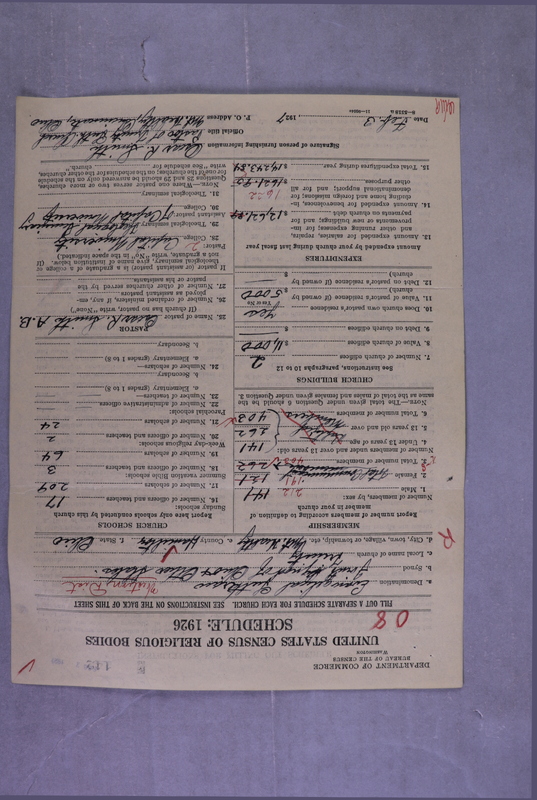 DEPARTMENT OF COMMERCE
BUREAU OF THE CENSUS
WASHINGTON
UNITED STATES CENSUS OF RELIGIOUS BODIES
SCHEDULE: 1926
08
FILL OUT A SEPARATE SCHEDULE FOR EACH CHURCH. SEE INSTRUCTIONS ON THE BACK OF THIS SHEET
a. Denomination Evangelical Lutheran
b. Synod Joint Synod of Ohio & Other States.
Western Dist
c. Local name of church Trinity
d. City, town, village, or township, etc. Mt. Healthy e. County Hamilton f. State Ohio
R
MEMBERSHIP
Report number of members according to definition of
member in your church
Number of members, by sex:
1. Male 141
212
2. Female 121
191
3. Total number of members 262
403
Number of members under and over 13 years old:
4. Under 13 years of age 141
5. 13 years old and over 262
6. Total number of members 403
NOTE.—The total given under Question 6 should be the
same as the total of males and females given under Question 3.
CHURCH BUILDINGS
See instructions, paragraphs 10 to 12
7. Number of church edifices 2
8. Value of church edifices $ 11,000
9. Debt on church edifices $
10. Does church own pastor's residence yes
(Yes or No)
11. Value of pastor's residence (if owned by
church) $ 5000
12. Debt on pastor's residence (if owned by
church) $
EXPENDITURES
Amount expended by your church during last fiscal year
13. Amount expended for salaries, repairs,
and other running expenses; im-
provements or new buildings; and
payments on church debt
14. Amount expended for benevolences, in-
cluding home and foreign missions; for
denominational support; and for all
other purposes $ 1621.90
1622
15. Total expenditures during year $ 4243.84
CHURCH SCHOOLS
Report here only schools conducted by this church
Sunday schools:
16. Number of officers and teachers 17
17. Number of scholars 209
Summer vacation Bible schools:
18. Number of officers and teachers 3
19. Number of scholars 64
Week-day religious schools:
20. Number of officers and teachers 2
21. Number of scholars 24
Parochial schools:
22. Number of administrative officers
23. Number of teachers—
a. Elementary (grades 1 to 8)
b. Secondary
24. Number of scholars—
a. Elementary (grades 1 to 8)
b. Secondary
PASTOR
25. Name of pastor Oscar R. Smith A.B.
(If church has no pastor, write "None")
26. Number of ordained ministers, if any, em-
ployed as assistant pastors
27. Number of other churches served by the
pastor or his assistants
If pastor (or assistant pastor) is a graduate of a college or
theological seminary, give name of institution below. (If
not a graduate, write "No" in the space indicated.)
Pastor:
28. College Capital University
29. Theological seminary Theological Seminary
Assistant pastor: of Capital University
30. College
31. Theological seminary
NOTE.—Where one pastor serves two or more churches,
Questions 25 and 28 should be answered only on the schedule
for one of the churches; on the schedules for the other churches,
write "See schedule for church."
Signature of person furnishing information Oscar R. Smith
Official title Pastor of Trinity Luth. Church
Date Feb. 3 1927 P. O. Address Mt. Healthy, Cincinnati, Ohio